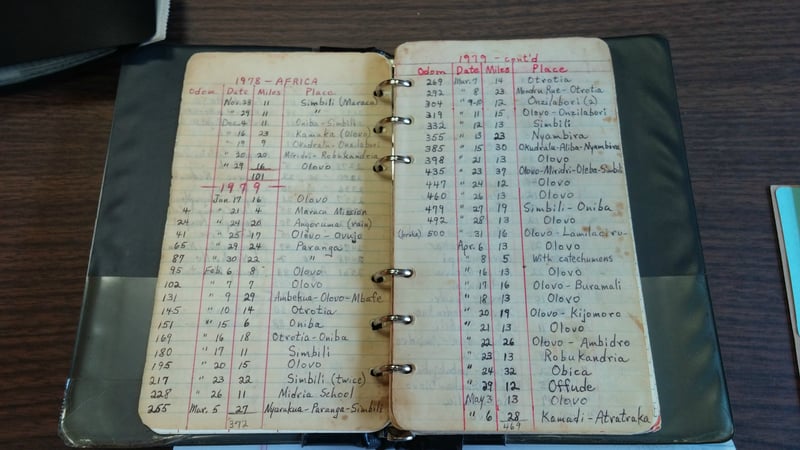 1978 - AFRICA
Odom Date Miles Place
Nov. 28 11 Simbili (Maraca)
" 29 11 "
Dec. 4 11 Oniba - Simbili
" 16 23 Kamaka (Olovo)
" 19 9 Okudrala - Onzilabori
" 20 20 Miridri - Robukandria
" 29 16 Olovo
101
1979
Jan. 17 16 Olovo
4 " 21 4 Maraca Mission
24 " 24 20 (rain)
41 " 25 17 Olovo - Ovujo
65 " 29 24 Paranga
87 " 30 22 "
95 Feb. 6 8 Olovo
102 " 7 7 Olovo
131 " 9 29 Ambekua - Olovo - Mbafe
145 " 10 14 Otrotia
151 " 15 6 Oniba
169 " 16 18 Otrotia - Oniba
180 " 17 11 Simbili
195 " 20 15 Olovo
217 " 23 22 Simbili (twice)
228 " 26 11 Midria School
255 Mar. 5 27 Nyarakua - Paranga - Simbili
372
1979 - cont'd
Odom Date Miles Place
269 Mar. 7 14 Otrotia
292 " 8 23 Rue - Otrotia
304 " 9-10 12 Onzilabori (2)
319 " 11 15 Olovo - Onzilabori
332 " 12 13 Simbili
355 " 13 23 Nyambira
385 " 15 30 Okudrala - Aliba - Nyambira
398 " 21 13 Olovo
435 " 23 37 Olovo - Miridri - Oleba - Simbili
447 " 24 12 Olovo
460 " 26 13 Olovo
479 " 27 19 Simbili - Oniba
492 " 28 13 Olovo
(broke) 500 " 31 16 Olovo - Lamila
Apr. 6 13 Olovo
" 8 5 With catechumens
" 16 13 Olovo
" 17 16 Olovo - Buramali
" 18 13 Olovo
" 20 19 Olovo - Kijomoro
" 21 13 Olovo
" 22 26 Olovo - Ambidro
" 23 13 Robukandria
" 24 32 Obica
" 29 12 Offude
May 3 13 Olovo
" 6 28 Kamadi - Atratraka
469